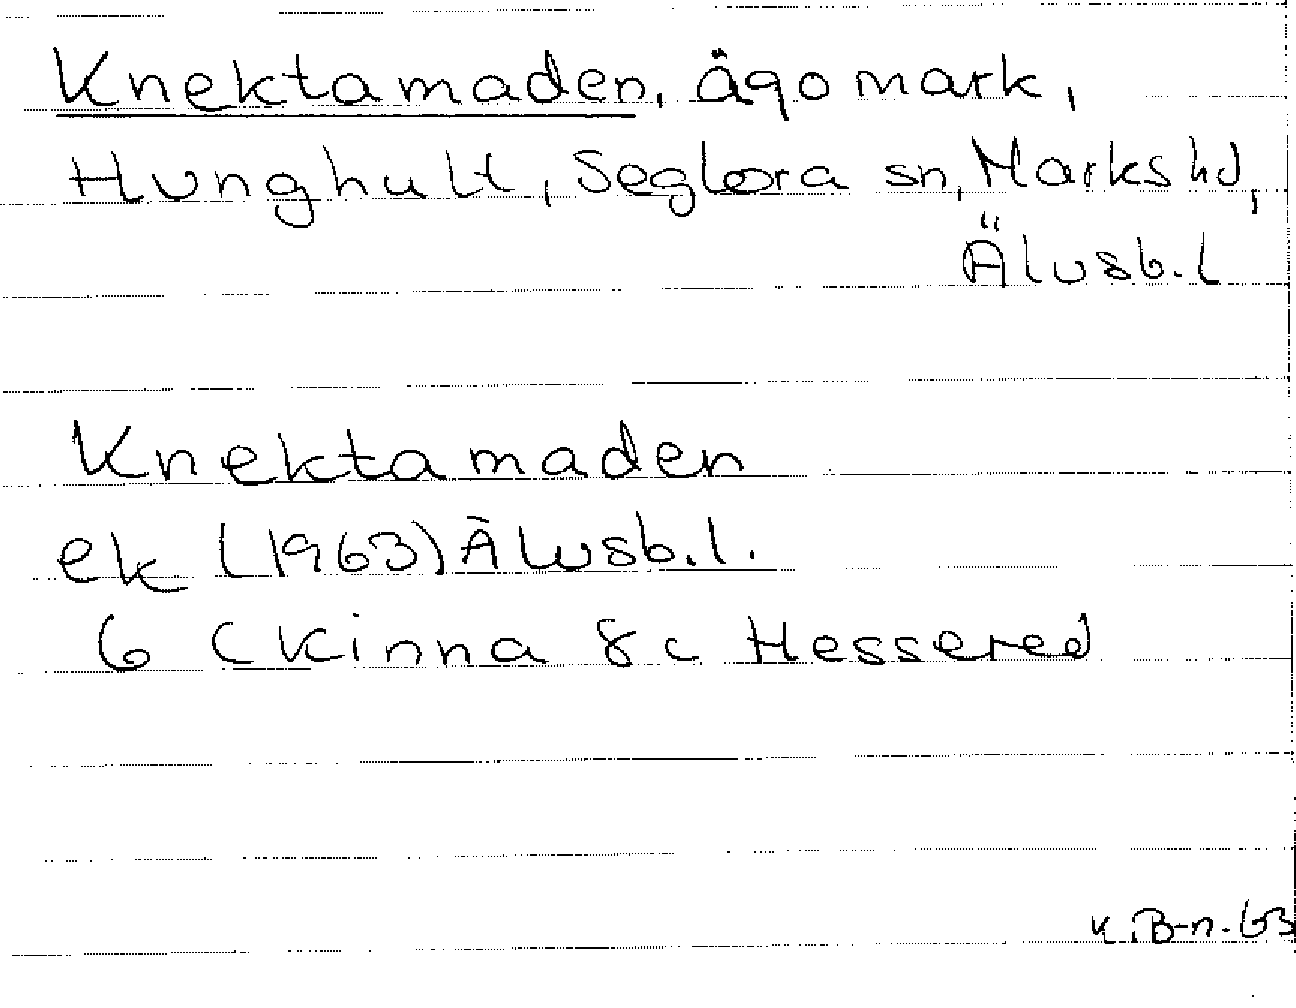 Knektamaden, ägomark,
Hunghult, Seglora sn, Marks hd,
Älvsb.l
Knektamaden
ek (1963) Älvsb.l.
6 C Kinna 8c Hessered
K.B-n. 63